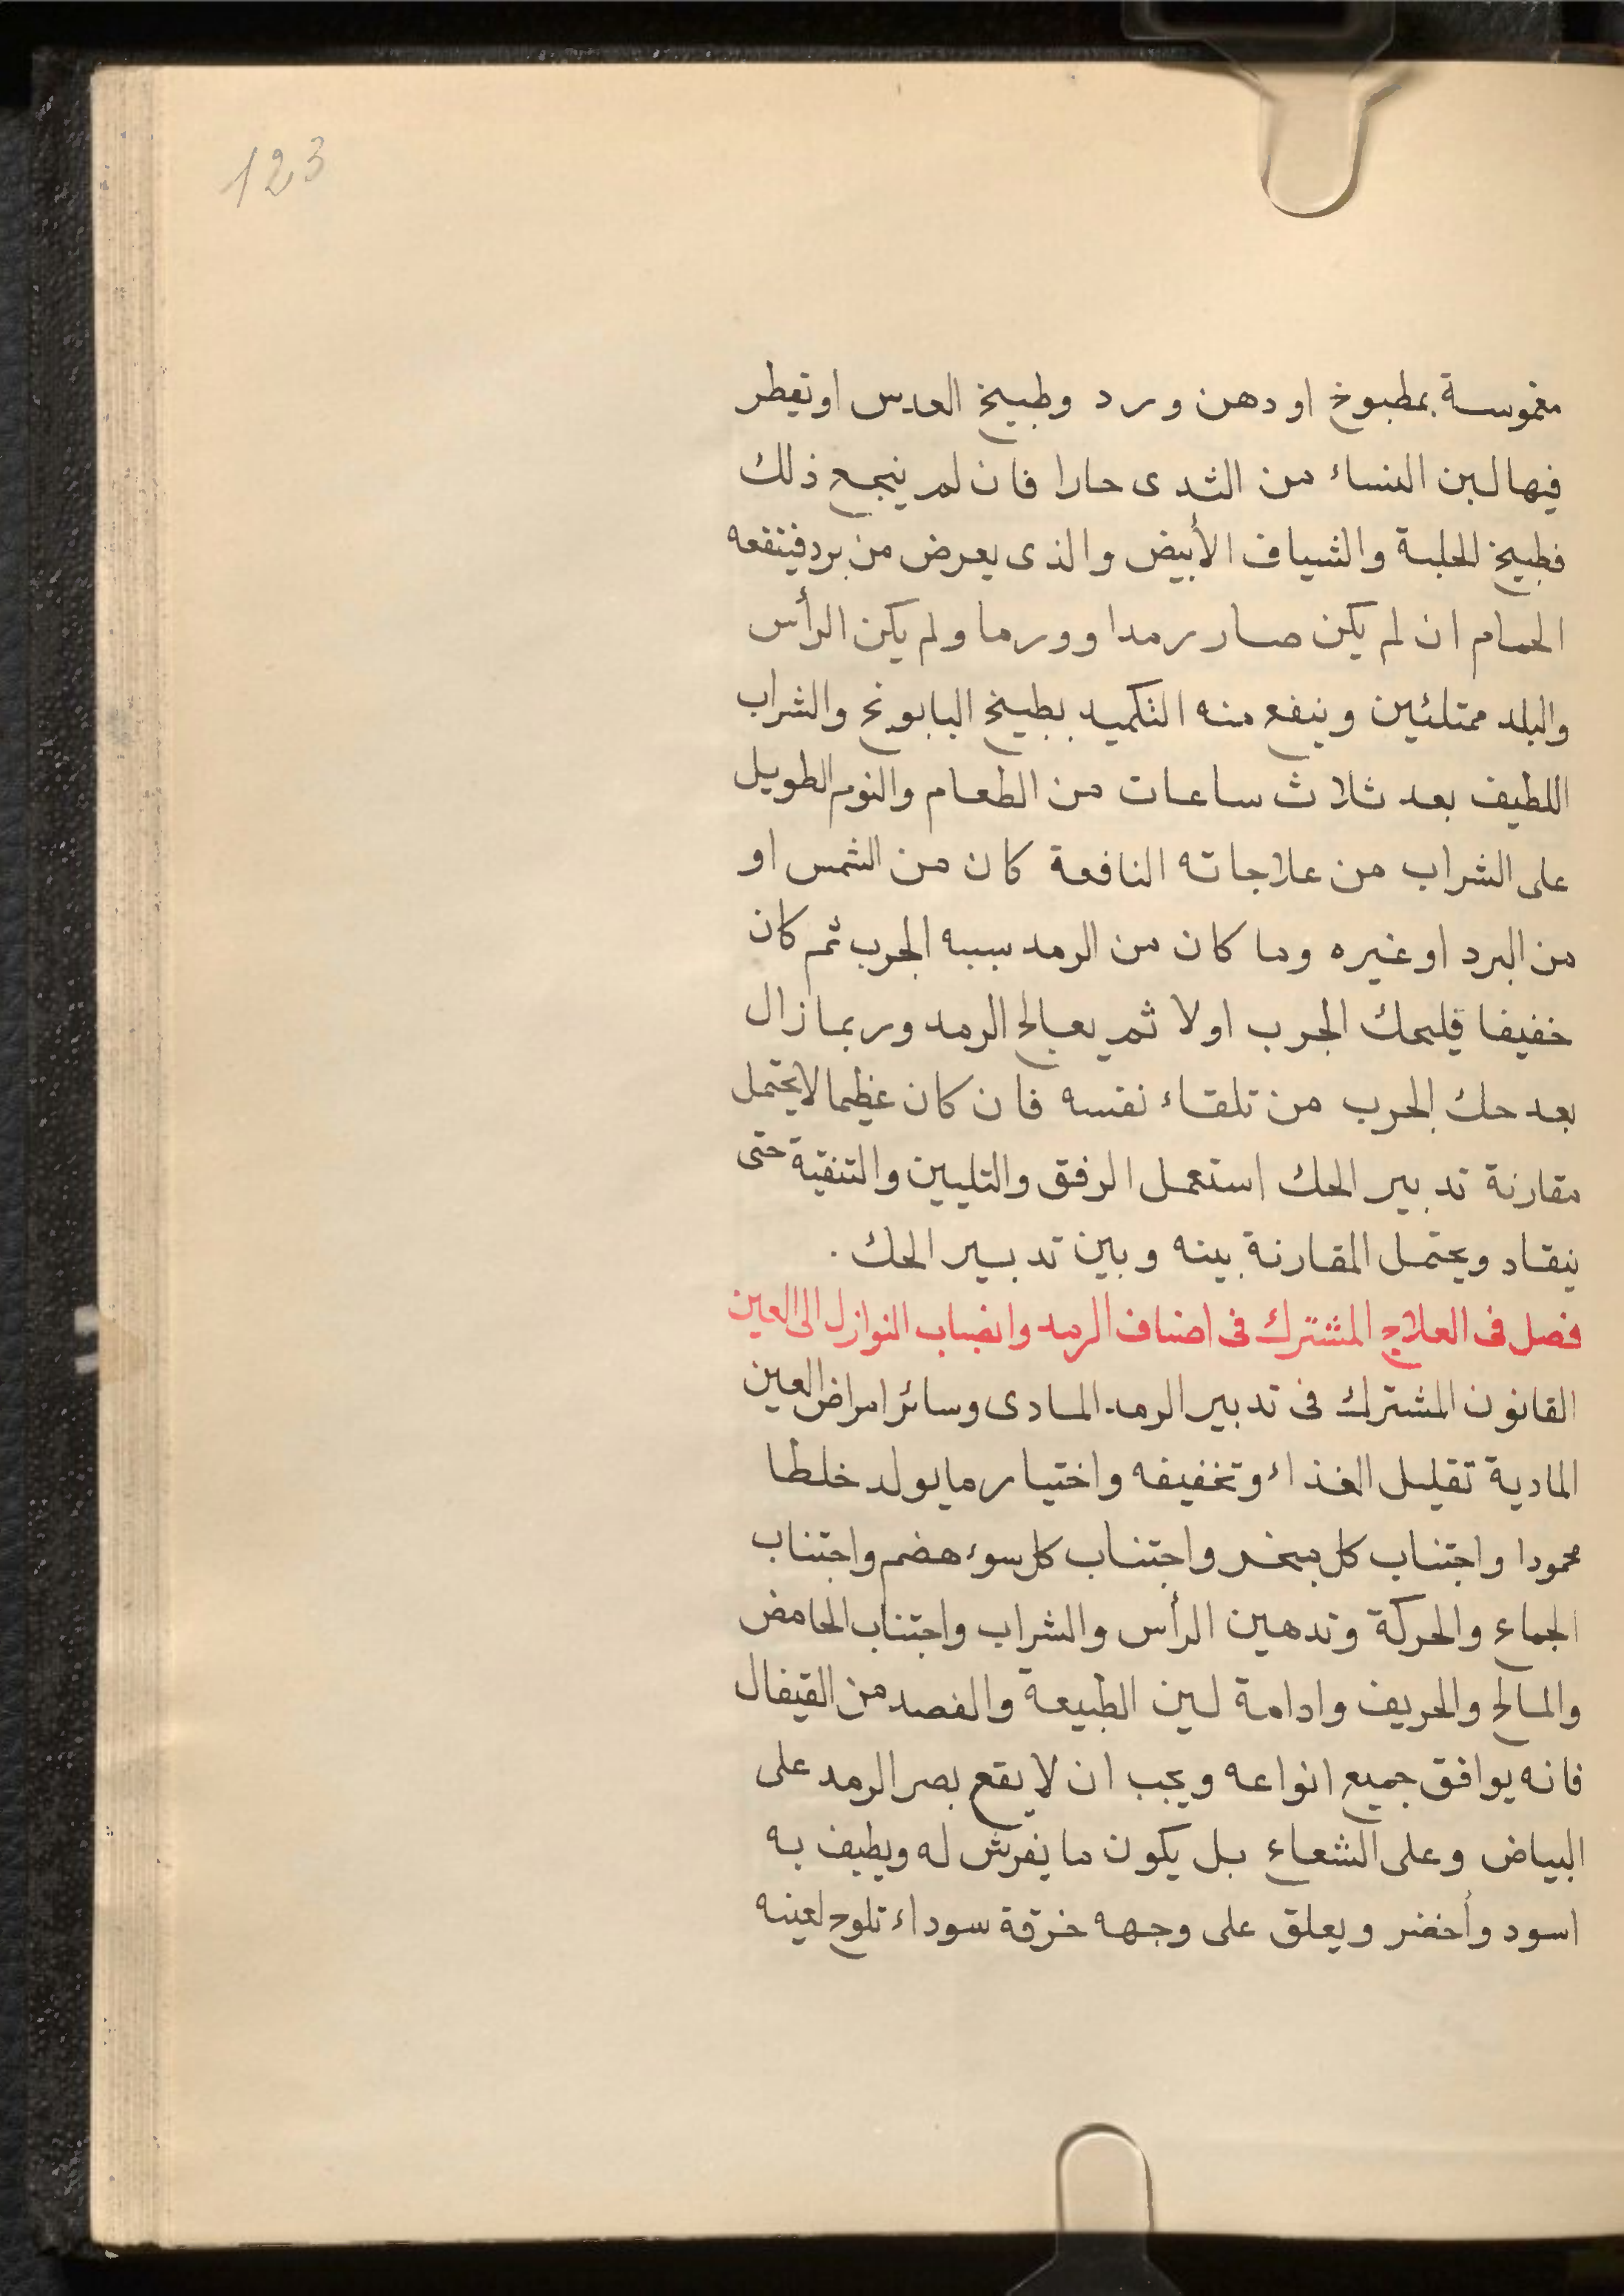 123
مغموسة بمطبوخ او دهن ورد وطبيخ العدس او تقطر
فيها لبن النساء من الثدى حارا فان لم ينجع ذلك
فطبيخ الحلبة والشياف الأبيض والذى يعرض من برد فينفعه
الحمام ان لم يكن صار رمدا وورما ولم يكن الرأس
والبلد ممتلئين وينفع منه التكميد بطبيخ البابونج والشراب
اللطيف بعد ثلاث ساعات من الطعام والنوم الطويل
على الشراب من علاجاته النافعة كان من الشمس او
من البرد او غيره وما كان من الرمد سببه الجرب ثم كان
خفيفا فليحك الجرب اولا ثم يعالج الرمد وربما زال
بعد حك الجرب من تلقاء نفسه فان كان عظيما لا يحتمل
مقارنة تدبير الحك استعمل الرفق والتليين والتنقية حتى
ينقاد ويحتمل المقارنة بينه وبين تدبير الحك .
فصل فى العلاج المشترك فى اصناف الرمد وانصباب النوازل الى العين
القانون المشترك فى تدبير الرمد المادى وسائر امراض العين
المادية تقليل الغذاء وتخفيفه واختيار ما يولد خلطا
محمودا واجتناب كل مبخر واجتناب كل سوء هضم واجتناب
الجماع والحركة وتدهين الرأس والشراب واجتناب الحامض
والمالح والحريف وادامة لين الطبيعة والفصد من القيفال
فانه يوافق جميع انواعه ويجب ان لا يقع بصر الرمد على
البياض وعلى الشعاع بل يكون ما يفرش له ويطيف به
اسود وأخضر ويعلق على وجهه خرقة سوداء تلوح لعينه